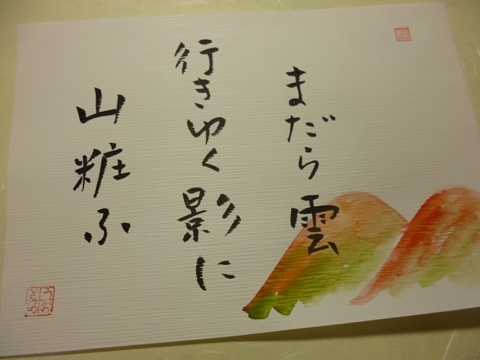 まだら雲
行きゆく影に
山粧ふ